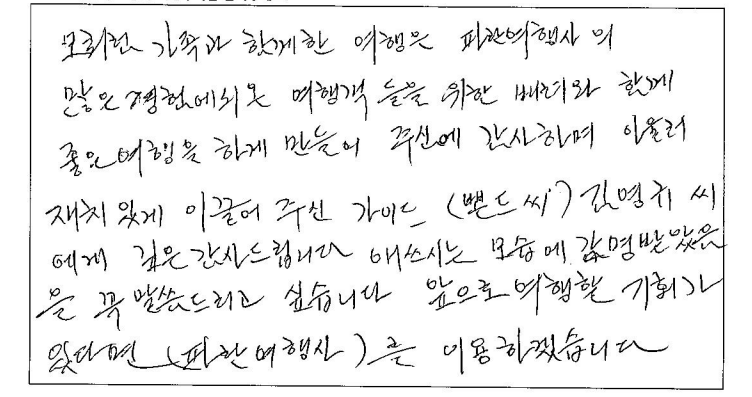 모처런 가족과 함께한 여행은 파란여행사 의
많은 경험에의 여행객 들을 위한 배려와 함께
좋은 여행을 하게 만들어 주심에 감사하며 아울러
재치 있게 이끌어 주신 가이드 (밴드 씨) 김명귀 씨
에게 깊은 감사드립니다 애쓰시는 모습에 감명받았음
을 꼭 말씀드리고 싶습니다 앞으로 여행할 기회가
있다면 (파란여행사) 를 이용하겠습니다